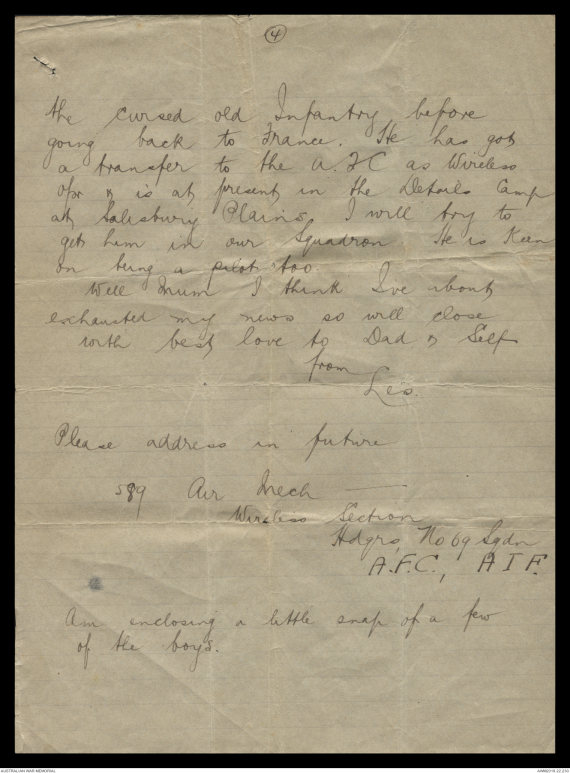 4
the cursed old Infantry before
going back to France. He has got
a transfer to the A.F.C as Wireless
Opr & is at present in the Details Camp
at Salisbury Plains. I will try to
get him in our Squadron He is Keen
on being a pilot too.
Well Mum I think I've about
exhausted my news so will close
with best love to Dad & Self
from
Leo.
Please address in future
589 Air Mech
Wireless Section
Hdqrs, No 69 Sqdn
A.F.C., A I F.
Am enclosing a little snap of a few
of the boys.
AUSTRALIAN WAR MEMORIAL